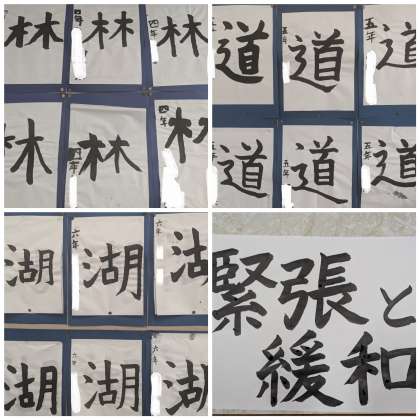 林 四年 林 四年 林
林 四年 林 四年 林
道 五年 道 五年 道
道 五年 道 五年 道
湖 六年 湖 六年 湖
湖 六年 湖 六年 湖
緊張と
緩和